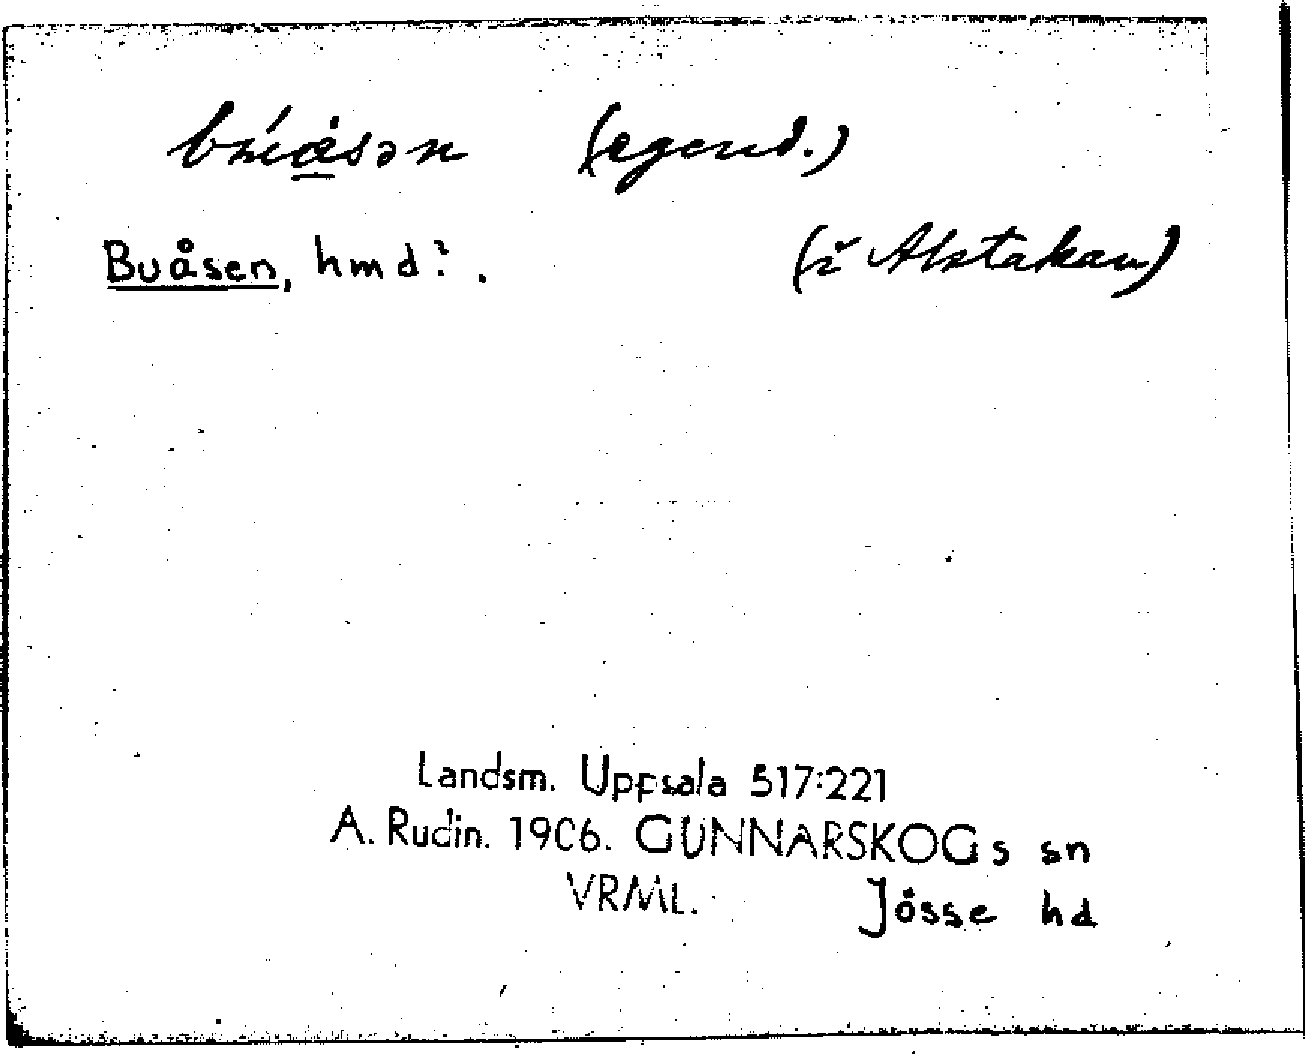 (egend.)
Buåsen, hmd? . (i Alstakan)
Landsm. Uppsala 517:221
A. Rudin. 1906. GUNNARSKOGs sn
VRML. Jösse hd